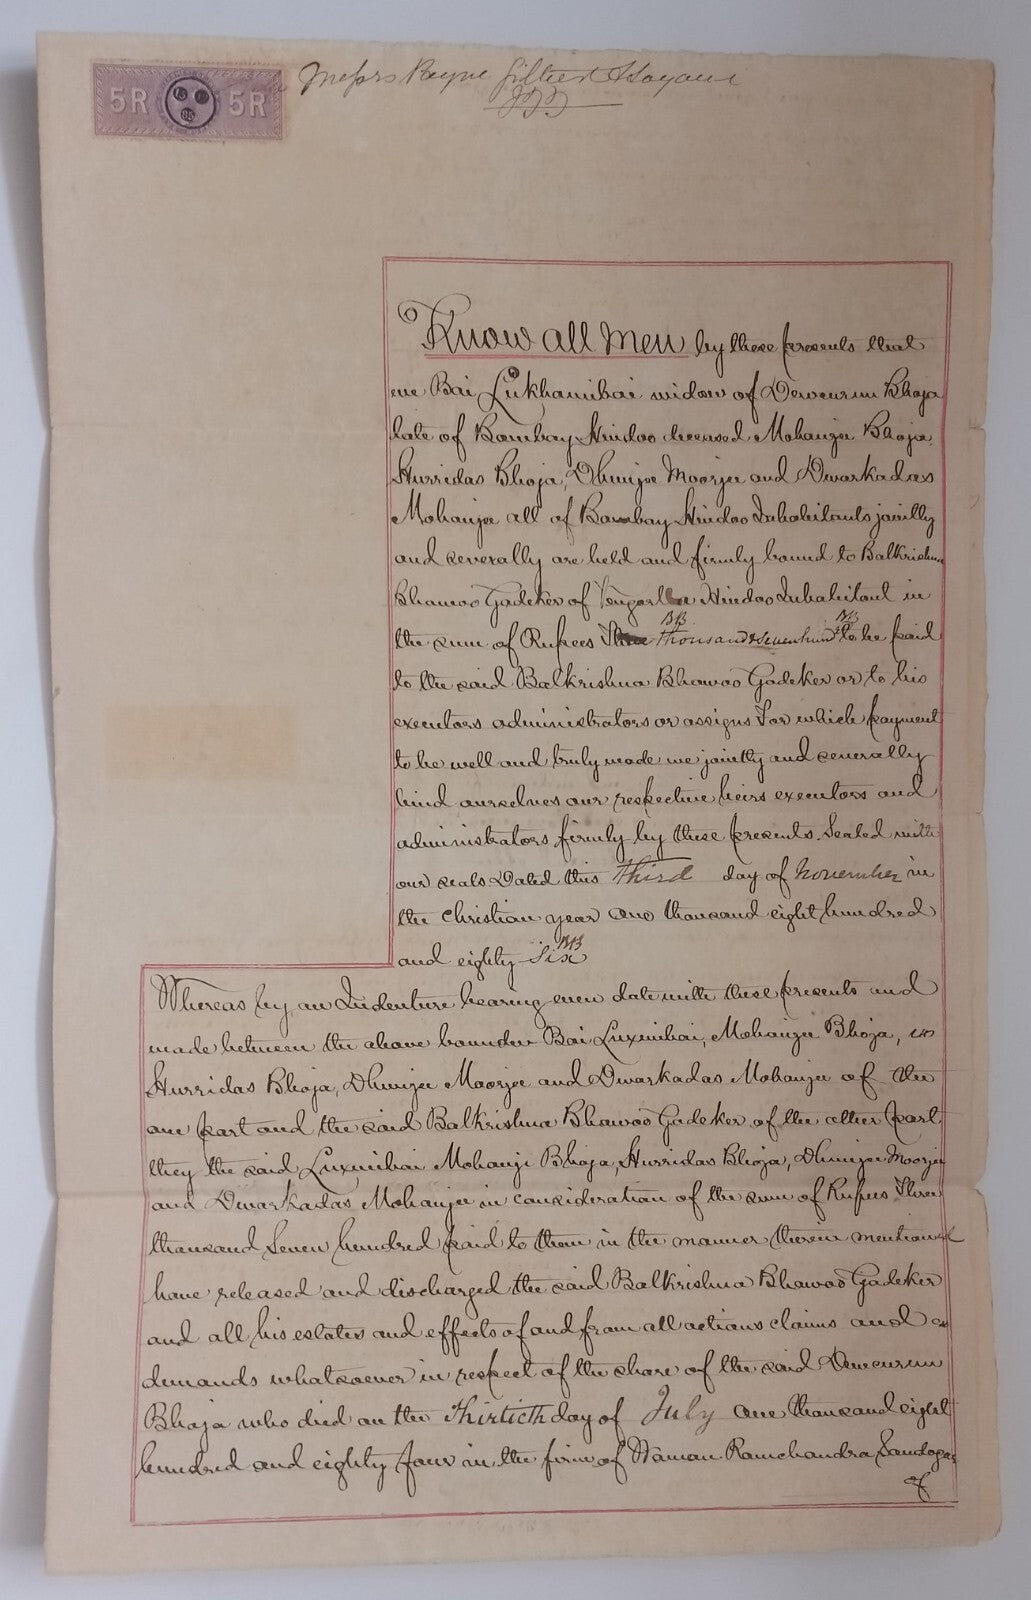 5R 5R
Messrs Payne Gilbert & Sayani
Know all Men by these presents that
we Bai Lukhamibai widow of Dewcurun Bhoja
late of Bombay Hindoo deceased Mohanjee Bhoja,
Hurridas Bhoja, Dhunjee Moorjee and Dwarkadass
Mohanjee all of Bombay Hindoo Inhabitants jointly
and severally are held and firmly bound to Balkrishna
Bhawoo Gadeker of Vengorlla Hindoo Inhabitant in
the sum of Rupees Three thousand & seven hund to be paid
to the said Balkrishna Bhawoo Gadeker or to his
executors administrators or assigns For which payment
to be well and truly made we jointly and severally
bind ourselves our respective heirs executors and
administrators firmly by these presents. Sealed with
our seals Dated this Third day of November in
the Christian year One thousand eight hundred
and eighty Six
Whereas by an Indenture bearing even date with these presents and
made between the above bounden Bai Luxmibai, Mohanjee Bhoja,
Hurridas Bhoja, Dhunjee Moorjee and Dwarkadas Mohanjee of the
one part and the said Balkrishna Bhawoo Gadeker of the other part
they the said Luxmibai Mohanji Bhoja, Hurridas Bhoja, Dhunjee Moorjee
and Dwarkadas Mohanjee in consideration of the sum of Rupees Three
thousand Seven hundred paid to them in the manner therein mentioned
have released and discharged the said Balkrishna Bhawoo Gadeker
and all his estates and effects of and from all actions claims and
demands whatsoever in respect of the share of the said Dewcurun
Bhoja who died on the Thirtieth day of July One thousand eight
hundred and eighty four in the firm of Waman Ramchandra Sawdogar
of